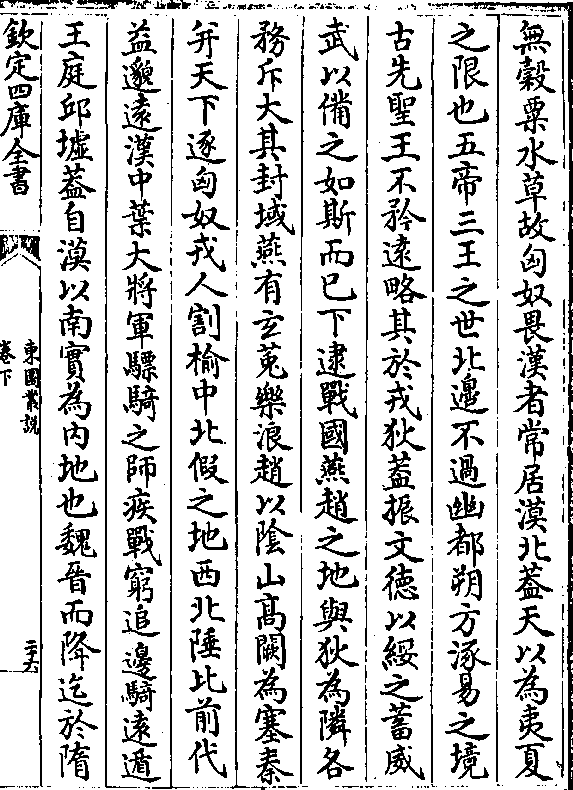 無穀粟水草故匈奴畏漢者常居漠北蓋天以為夷夏
之限也五帝三王之世北邊不過幽都朔方涿易之境
古先聖王不矜逺略其於戎狄蓋振文徳以綏之蓄威
武以備之如斯而已下逮戰國燕趙之地與狄為隣各
務斥大其封域燕有玄菟樂浪趙以隂山髙闕為塞秦
并天下逐匈奴戎人割榆中北假之地西北陲比前代
益邈逺漢中葉大將軍驃騎之師疾戰窮追邊騎逺遁
王庭邱墟蓋自漠以南實為内地也魏晉而降迄於隋
欽定四庫全書
東園叢説
卷下
二十六